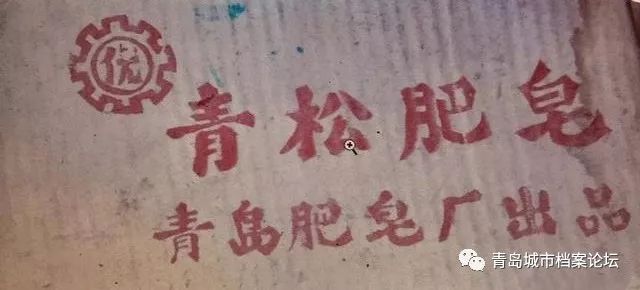 优
青松肥皂
青岛肥皂厂出品
青岛城市档案论坛